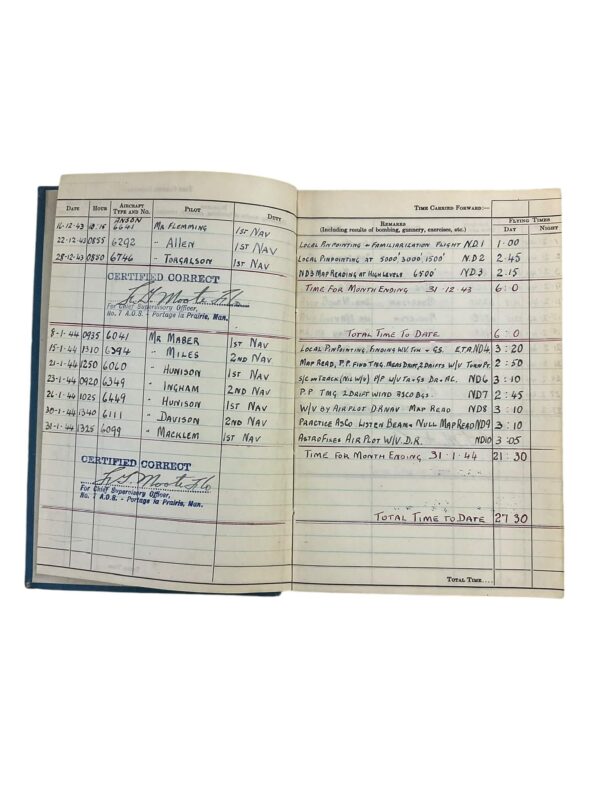 TIME CARRIED FORWARD:—
DATE HOUR AIRCRAFT TYPE AND NO. PILOT DUTY REMARKS (Including results of bombing, gunnery, exercises, etc.) FLYING TIMES DAY NIGHT
ANSON
16-12-43 6641 MR FLEMMING 1ST NAV LOCAL PINPOINTING + FAMILIARIZATION FLIGHT ND1 1·00
22-12-43 0855 6292 " ALLEN 1ST NAV LOCAL PINPOINTING AT 5000' 3000' 1500' N.D2 2·45
28-12-43 0850 6746 " TORGALSON 1ST NAV ND3 MAP READING AT HIGH LEVELS 6500' ND3 2.15
CERTIFIED CORRECT TIME FOR MONTH ENDING 31·12·43 6:0
For Chief Supervisory Officer,
No. 7 A.O.S. - Portage la Prairie, Man.
TOTAL TIME TO DATE 6:0
8-1-44 0935 6041 MR MABER 1ST NAV LOCAL PINPOINTING, FINDING W/V TRK + GS. ETA ND4 3:20
15-1-44 1310 6394 " MILES 2ND NAV MAP READ, P.P. FIND TMG. MEAS DRIFT, 2 DRIFTS W/V TURN PT. 2:50
21-1-44 1250 6060 " HUNISON 1ST NAV S/C ON TRACK (NIL W/V) A/P W/V TR+GS DR+AL. ND6 3:10
23-1-44 0920 6349 " INGHAM 2ND NAV P.P TMG 2 DRIFT WIND ASCO BGS. ND7 2:45
26-1-44 1025 6449 " HUNISON 1ST NAV W/V BY AIRPLOT D.R NAV MAP READ ND8 3:10
30-1-44 1340 6111 " DAVISON 2ND NAV PRACTICE ASCO LISTEN BEAM + NULL MAP READ ND9 3:10
31-1-44 1325 6099 " MACKLEM 1ST NAV ASTRO FIXES AIR PLOT W/V D.R. ND10 3:05
TIME FOR MONTH ENDING 31·1·44 21:30
CERTIFIED CORRECT
For Chief Supervisory Officer,
No. 7 A.O.S. - Portage la Prairie, Man.
TOTAL TIME TO DATE 27 30
TOTAL TIME....